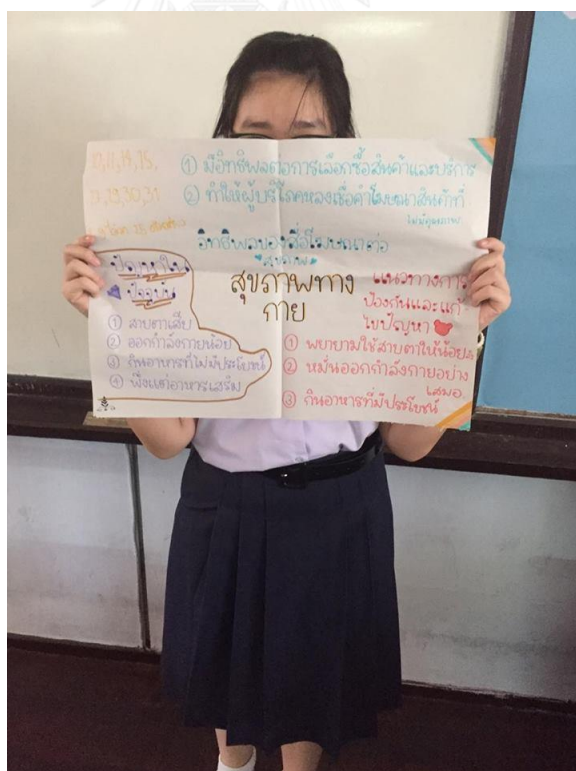 ① มีอิทธิพลต่อการเลือกซื้อสินค้าและบริการ
② ทำให้ผู้บริโภคหลงเชื่อคำโฆษณาสินค้าที่
ไม่มีคุณภาพ
19,30,31
อิทธิพลของสื่อโฆษณาต่อ
สุขภาพ
สุขภาพทาง
กาย
ปัญหาใน
ปัจจุบัน
① สายตาเสีย
② ออกกำลังกายน้อย
③ กินอาหารที่ไม่มีประโยชน์
④ พึ่งแต่อาหารเสริม
แนวทางการ
ป้องกันและแก้
ไขปัญหา
① พยายามใช้สายตาให้น้อยลง
② หมั่นออกกำลังกายอย่าง
เสมอ
③ กินอาหารที่มีประโยชน์